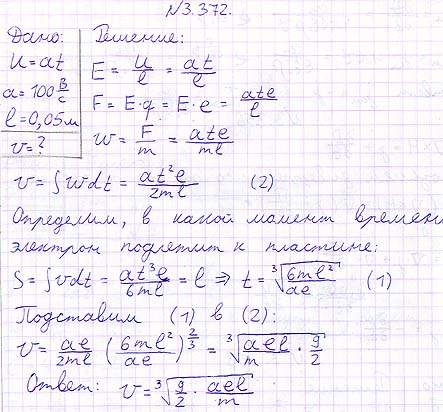 №3.372.
Дано: Решение:
U = at
a = 100 В/с
l = 0,05 м
v = ?
E = U/l = at/l
F = E·q = E·e = ate/l
w = F/m = ate/ml
v = ∫wdt = at²e/2ml (2)
Определим, в какой момент времени
электрон подлетит к пластине:
S = ∫vdt = at³e/6ml = l ⇒ t = ∛(6ml²/ae) (1)
Подставим (1) в (2):
v = ae/2ml (6ml²/ae)^(2/3) = ∛(ael/m · 9/2)
Ответ: v = ∛(9/2 · ael/m)